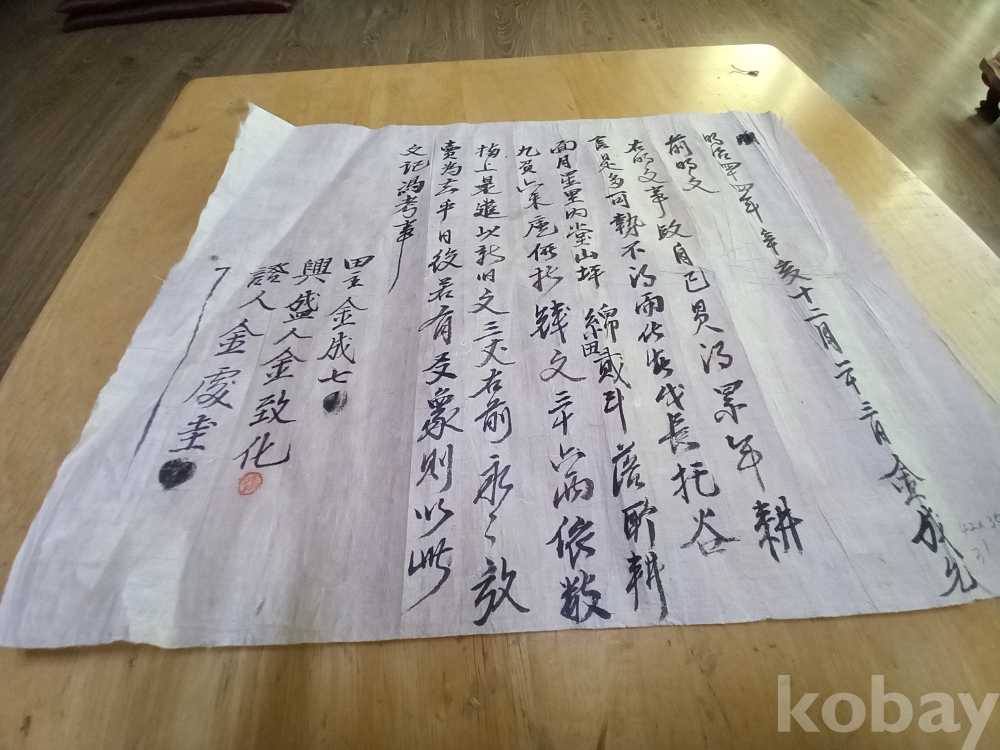 明治四四年辛亥十二月二十三日 金成允
前明文
右明文事段自己買得累年耕
言是多可勢不得而代安伐長托谷
面月星里內堂山坪 綿田貳斗落所耕
九負六束庫依折錢文三十六兩依數
捧上是遣以新旧文三丈右前永〻放
賣為去乎日後若有爻象則以此
文記馮考事
田主金成七
興盛人金致化
證人金處圭
kobay